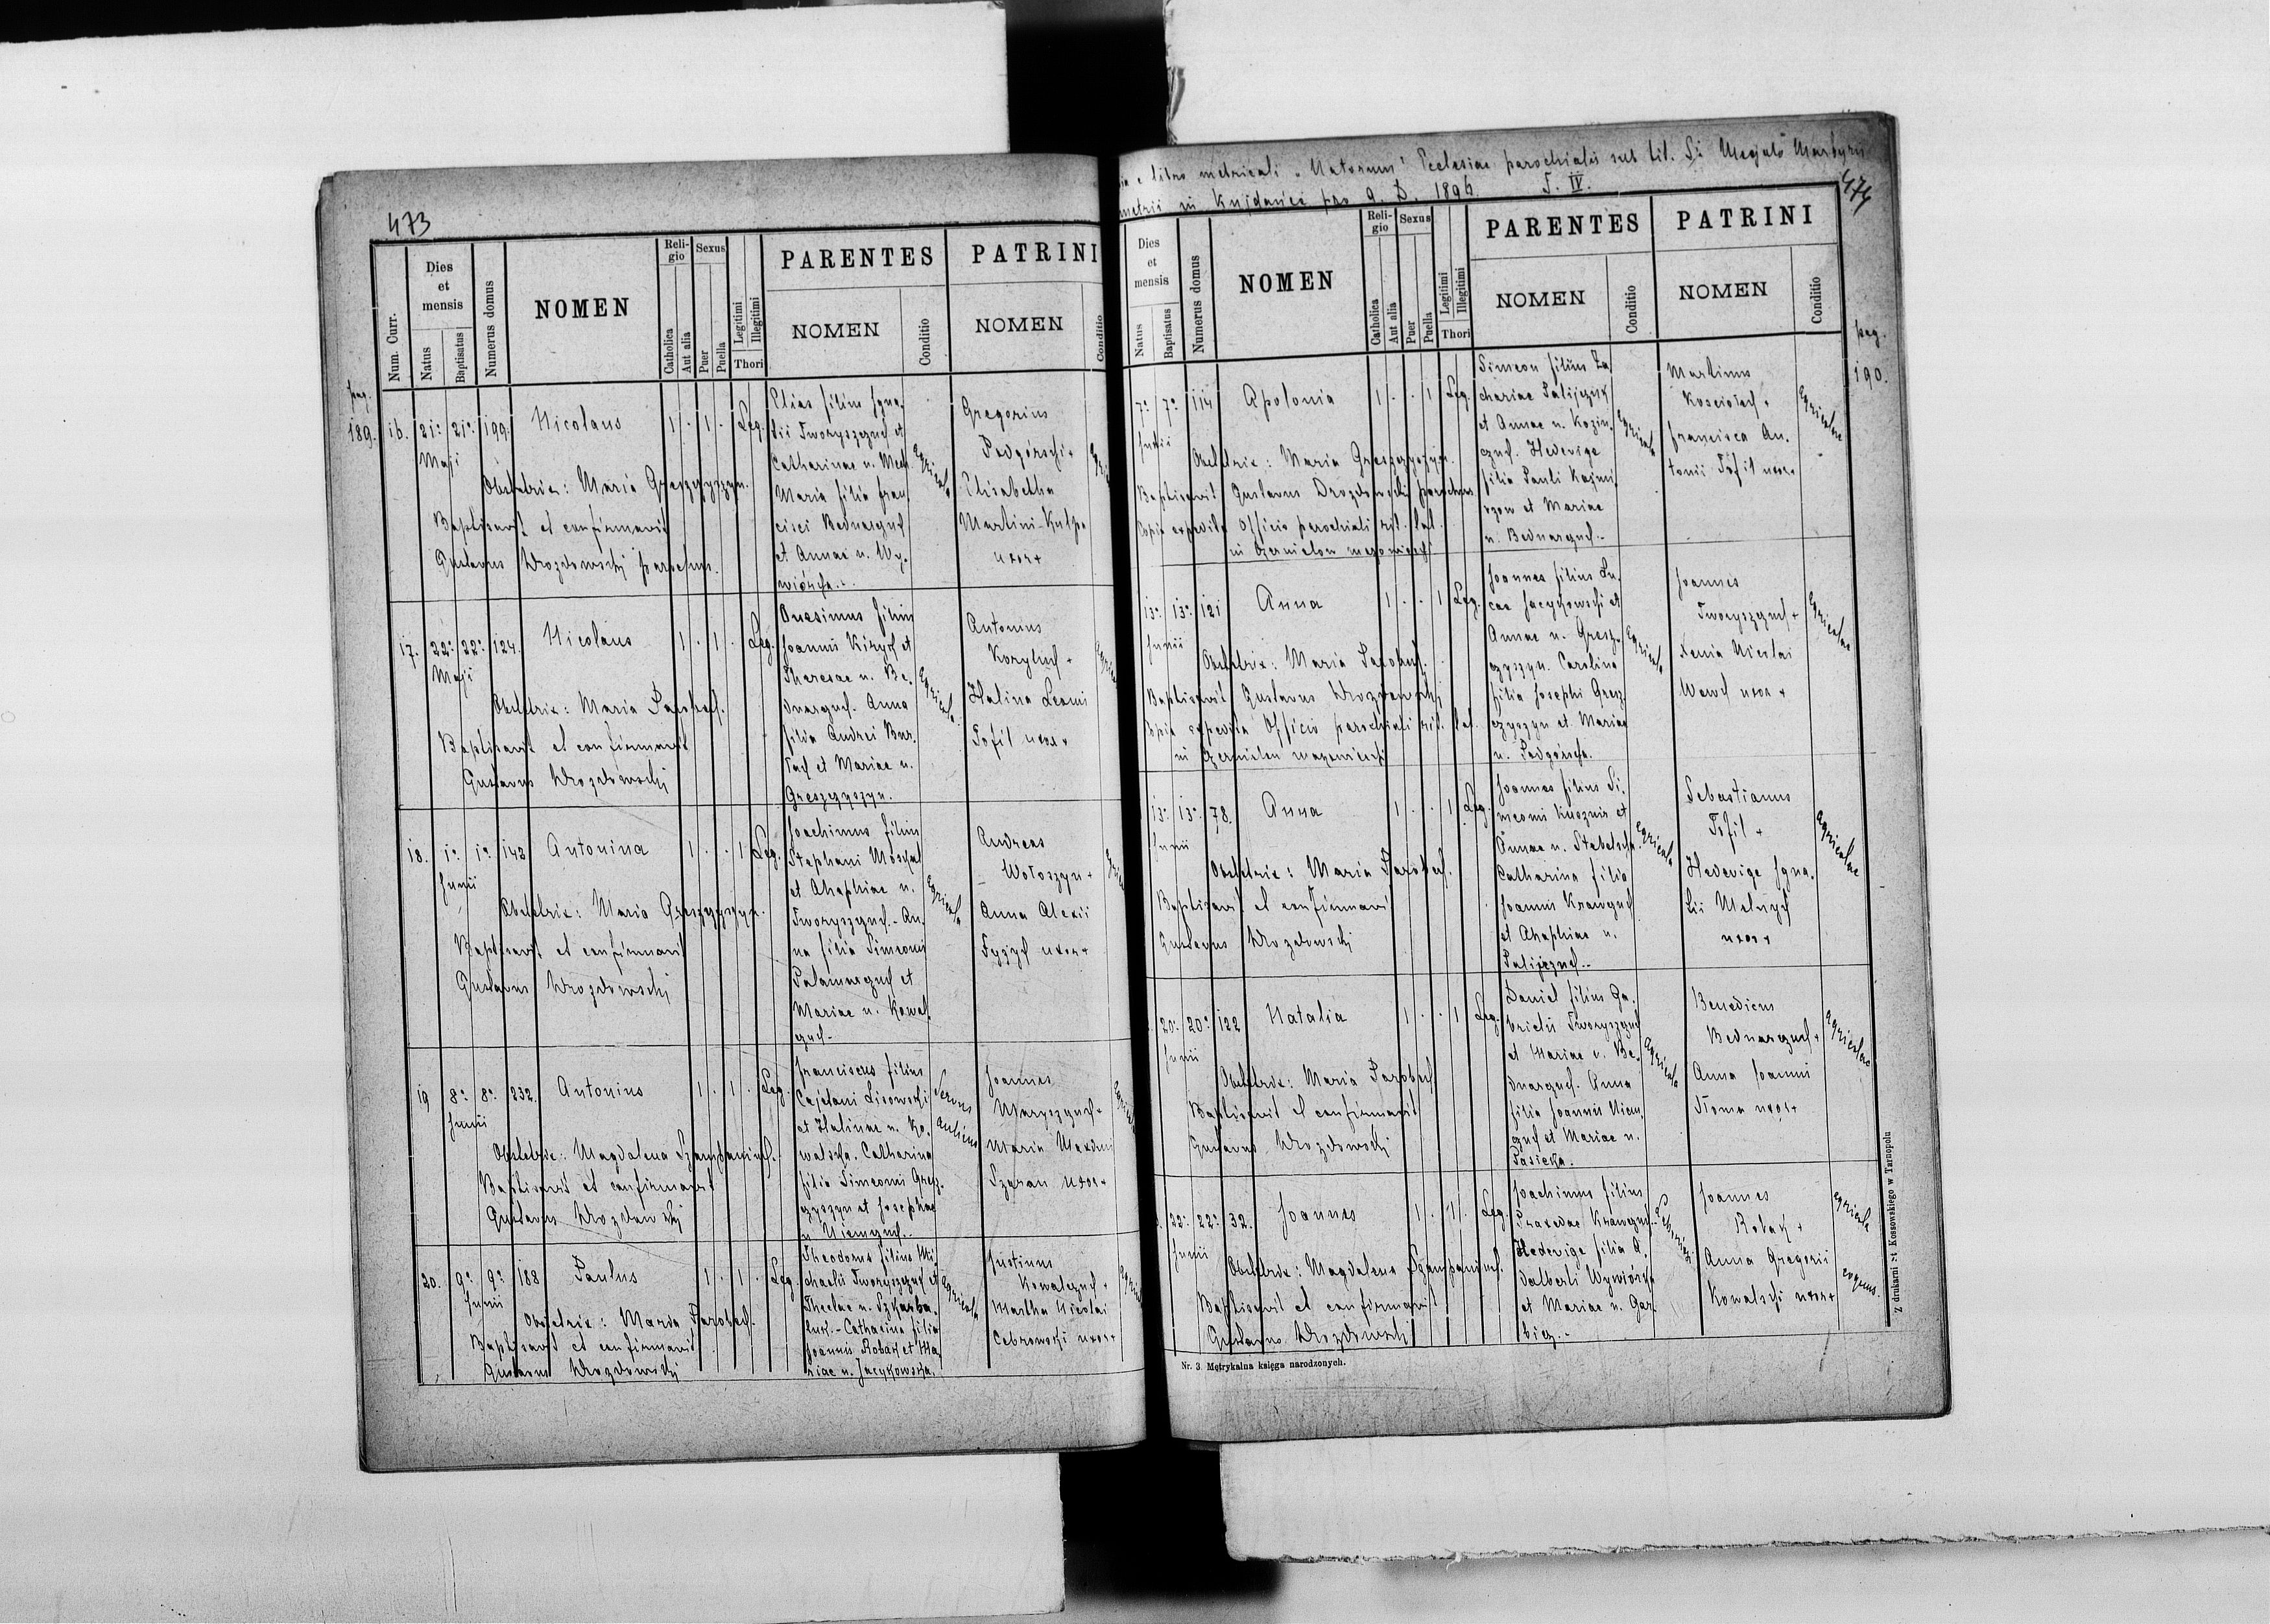 473
Num. Curr.
Dies et mensis
Natus
Baptisatus
Numerus domus
NOMEN
Religio
Catholica
Aut alia
Sexus
Puer
Puella
Legitimi
Illegitimi
Thori
PARENTES
NOMEN
Conditio
PATRINI
NOMEN
Conditio
pag.
189.
16. 21. 21. 199. Nicolaus 1 . 1 . Leg.
Maji
Obstetrix: Maria Greszczyszyn.
Baptisavit et confirmavit
Gustavus Drozdowskj parochus.
Elias filius Igna-
tii Tworyszczuk et
Catharinae n.
Maria filia Fran-
cisci Bednarczuk
et Annae n. Wy-
wiórska.
Agricola
Gregorius
Podgórski +
Elisabetha
Martini Kulpa
uxor +
17. 22. 22. 124. Nicolaus 1 . 1 . Leg.
Maji
Obstetrix: Maria Parobech.
Baptisavit et confirmavit
Gustavus Drozdowskj
Onesimus filius
Joannis Kiryk et
Theresae n. Be-
dnarczuk. Anna
filia Andrei
et Mariae n.
Greszczyszyn.
Agricola
Antonius
Halina
Tofil uxor +
18. 1. 1. 143 Antonina 1 . . 1 Leg.
Junii
Obstetrix: Maria Greszczyszyn.
Baptisavit et confirmavit
Gustavus Drozdowskj
Joachimus filius
Stephani
et Ahaphiae n.
Tworyszczuk. An-
na filia Simeonis
Palamarczuk et
Mariae n. Kowal-
czuk.
Agricola
Andreas
Wołoszyn +
Anna Alexii
uxor +
19 8. 8. 232. Antonius 1 . 1 . Leg.
Junii
Obstetrix: Magdalena
Baptisavit et confirmavit
Gustavus Drozdowskj
Franciscus filius
Cajetani Lisowski
et Halinae n. Ko-
walska. Catharina
filia Simeonis Gresz-
czyszyn et Josephae
n. Niemczuk.
Servus
aulicus
Joannes
Maryszczuk +
Maria
uxor +
20. 9. 9. 188 Paulus 1 . 1 . Leg.
Junii
Obstetrix: Maria Parobech.
Baptisavit et confirmavit
Gustavus Drozdowskj
Theodorus filius Mi-
chaelis Tworyszczuk et
Theclae n. Szkarba-
luk. - Catharina filia
Joannis Robak et Ma-
riae n. Jacykowska.
Agricola
Justinus
Kowalczuk +
Martha Nicolai
Cebrowski uxor +
libro metricali "Natorum" Ecclesiae parochialis sub tit. Si Megalo Martyris
in Kujdańce pro A. D. 1896 T. IV.
474
Dies et mensis
Natus
Baptisatus
Numerus domus
NOMEN
Religio
Catholica
Aut alia
Sexus
Puer
Puella
Legitimi
Illegitimi
Thori
PARENTES
NOMEN
Conditio
PATRINI
NOMEN
Conditio
pag.
190.
7. 7. 114 Apolonia 1 . . 1 Leg.
Junii
Obstetrix: Maria Greszczyszyn.
Baptisavit Gustavus Drozdowskj parochus
Copia expedita Officio parochiali rit. lat.
in Czernielow mazowiecki
Simeon filius Za-
chariae Palijczuk
et Annae n. Kozin-
czuk. Hedevige
filia Pauli Kazmi-
rzow et Mariae
n. Bednarczuk.
Agricola
Martinus
Kościołach +
Francisca An-
tonii Tofil uxor +
Agricolae
13. 13. 121 Anna 1 . . 1 Leg.
Junii
Obstetrix: Maria Parobech.
Baptisavit Gustavus Drozdowskj
Copia expedita Officio parochiali rit. lat.
in Czernielow mazowiecki
Joannes filius Lu-
cae Jacykowski et
Annae n. Gresz-
czyszyn. Carolina
filia Josephi Gresz-
czyszyn et Mariae
n. Podgórska.
Agricola
Joannes
Tworyszczuk +
Xenia Nicolai
uxor +
Agricolae
13. 13. 78. Anna 1 . . 1 Leg.
Junii
Obstetrix: Maria Parobech.
Baptisavit et confirmavit
Gustavus Drozdowskj
Joannes filius Si-
meonis Kusznir et
Annae n. Stebelska.
Catharina filia
Joannis Krawczuk
et Ahaphiae n.
Palijczuk.
Agricola
Sebastianus
Tofil +
Hedevige Igna-
tii Melnyk
uxor +
Agricolae
20. 20. 122 Natalia 1 . . 1 Leg.
Junii
Obstetrix: Maria Parobech
Baptisavit et confirmavit
Gustavus Drozdowskj
Daniel filius Ga-
brielis Tworyszczuk
et Mariae n. Be-
dnarczuk. Anna
filia Joannis Niem-
czuk et Mariae n.
Pasieka.
Agricola
Benedicus
Bednarczuk +
Anna Joannis
Słoma uxor +
Agricolae
22. 22. 32. Joannes 1 . 1 . Leg.
Junii
Obstetrix: Magdalena
Baptisavit et confirmavit
Gustavus Drozdowskj
Joachimus filius
Praxedae Krawczuk.
Hedevige filia A-
dalberti Wywiórska
et Mariae n. Gar-
bicz.
Joannes
Robak +
Anna Gregorii
Kowalski uxor +
Agricola
Nr. 3. Metrykalna księga narodzonych.
Z drukarni St. Kossowskiego w Tarnopolu